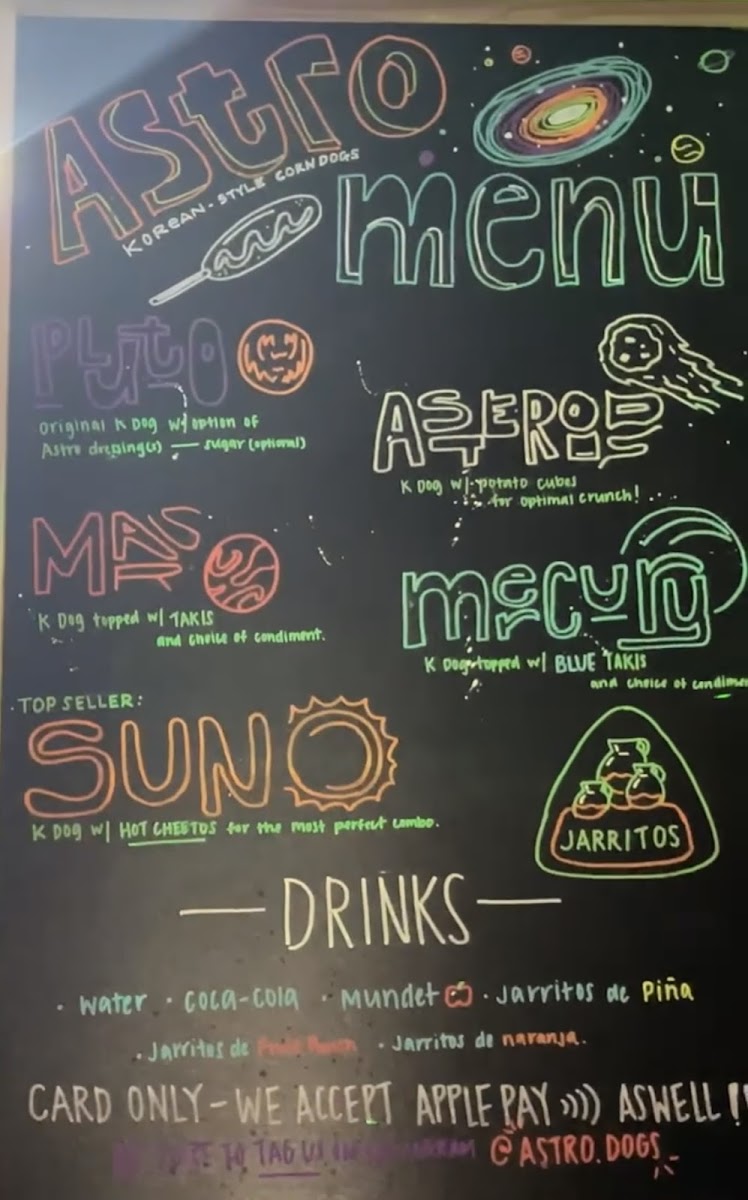 ASTRO
KOREAN-STYLE CORN DOGS
menu
PLUTO
original K Dog w/ option of
Astro dressing(s) — sugar (optional)
ASTEROID
K Dog w/ potato cubes
for optimal crunch!
MARS
K Dog topped w/ TAKIS
and choice of condiment.
mercury
K Dog topped w/ BLUE TAKIS
and choice of condime
TOP SELLER:
SUN
K Dog w/ HOT CHEETOS for the most perfect combo.
JARRITOS
— DRINKS —
· water · coca-cola · mundet · Jarritos de Piña
· Jarritos de Fruit Punch · Jarritos de naranja.
CARD ONLY - WE ACCEPT APPLE PAY ))) ASWELL !!
TO TAG US @ASTRO.DOGS